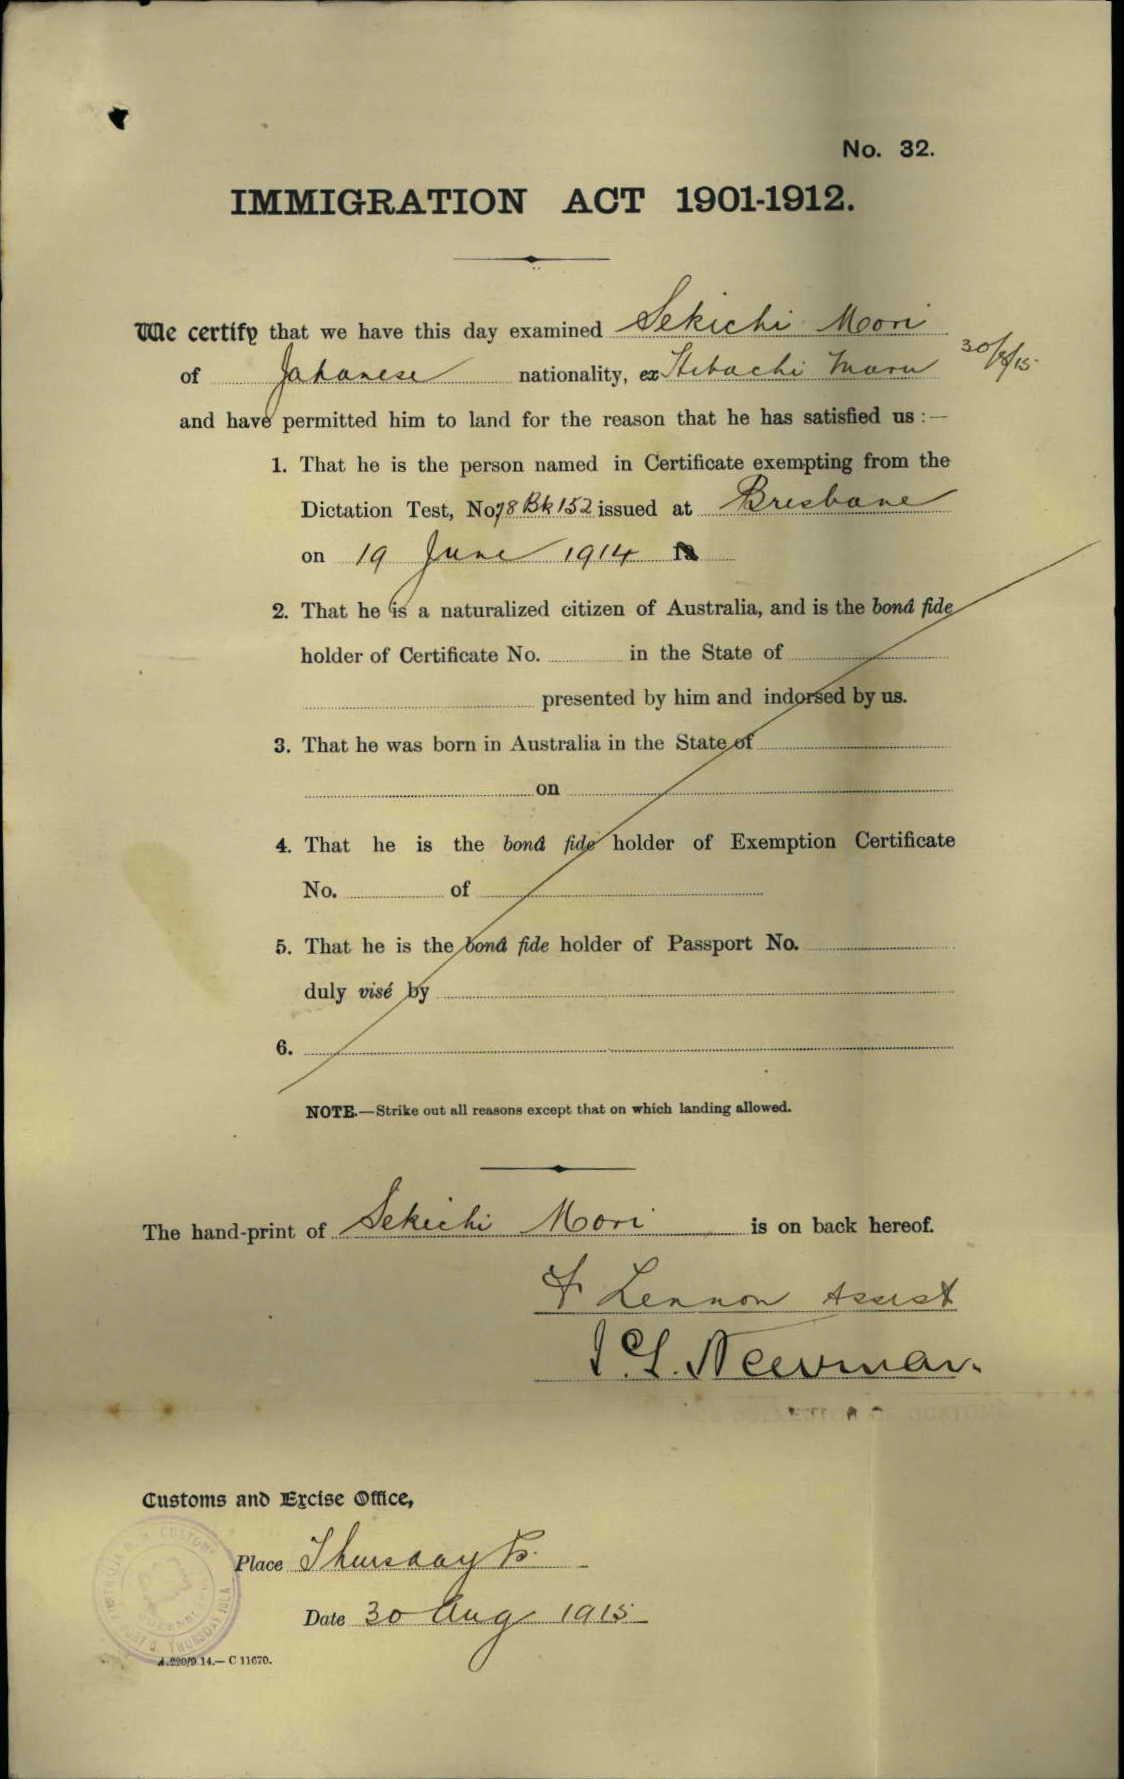 No. 32.
IMMIGRATION ACT 1901-1912.
We certify that we have this day examined Sekichi Mori
of Japanese nationality, ex Hitachi Maru 30/8/15
and have permitted him to land for the reason that he has satisfied us :—
1. That he is the person named in Certificate exempting from the
Dictation Test, No 78 Bk 152 issued at Brisbane
on 19 June 1914
2. That he is a naturalized citizen of Australia, and is the bonâ fide
holder of Certificate No. in the State of
presented by him and indorsed by us.
3. That he was born in Australia in the State of
on
4. That he is the bonâ fide holder of Exemption Certificate
No. of
5. That he is the bonâ fide holder of Passport No.
duly visé by
6.
NOTE.—Strike out all reasons except that on which landing allowed.
The hand-print of Sekichi Mori is on back hereof.
F Lennon Assist
J. L. Newman.
Customs and Excise Office,
Place Thursday Is.
Date 30 Aug 1915
A.220/9.14.—C 11670.